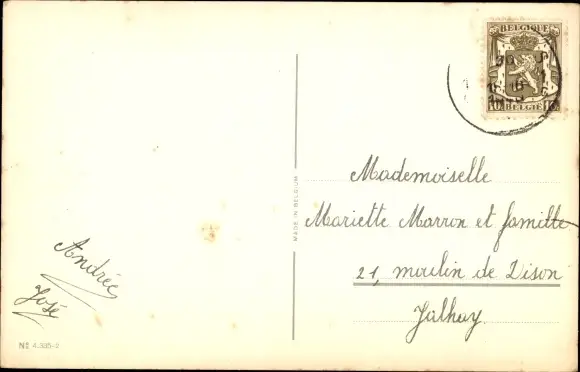 BELGIQUE
10 10
BELGIË
MADE IN BELGIUM
Mademoiselle
Mariette Marron et famille
21, moulin de Dison
Jalhay.
Andrée
José
Nº 4.335-2